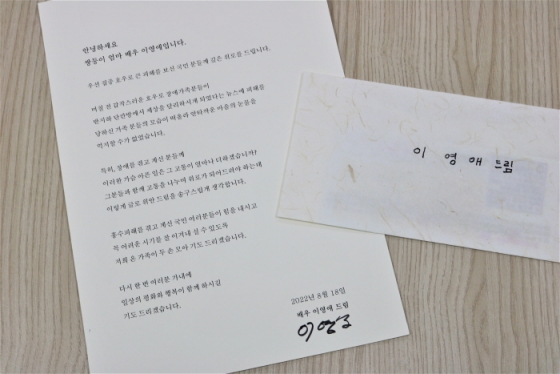 안녕하세요
쌍둥이 엄마 배우 이영애입니다.
우선 집중 호우로 큰 피해를 보신 국민 분들께 깊은 위로를 드립니다.
며칠 전 갑작스러운 호우로 장애가족분들이
반지하 단칸방에서 세상을 달리하시게 되었다는 뉴스에 피해를
당하신 가족 분들의 모습이 떠올라 안타까운 마음의 눈물을
억지할 수가 없었습니다.
특히, 장애를 겪고 계신 분들께
이러한 가슴 아픈 일은 그 고통이 얼마나 더하겠습니까?
그분들과 함께 고통을 나누어 위로가 되어드려야 하는데
이렇게 글로 위안 드림을 송구스럽게 생각합니다.
홍수피해를 겪고 계신 국민 여러분들이 힘을 내시고
이 어려운 시기를 잘 이겨내실 수 있도록
저희 온 가족이 두 손 모아 기도 드리겠습니다.
다시 한 번 여러분 가내에
일상의 평화와 행복이 함께 하시길
기도 드리겠습니다.
2022년 8월 18일
배우 이영애 드림
이영애
이 영 애 드림